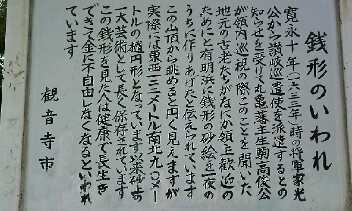 銭形のいわれ
寛永十年(一六三三年)時の将軍家光
公から讃岐巡遣使を派遣するとの
知らせを受けた丸亀藩主生駒高俊公
が領内巡視の際このことを聞いた
地元の古老たちがなにか領主歓迎の
ためにと有明浜に銭形の砂絵を一夜の
うちに作りあげたと伝えられています
この山頂から眺めると円く見えますが
実際には東西一二二メートル南北九〇メー
トルの楕円形となっています
一大芸術として長く保存されています
この銭形を見た人は健康で長生き
できて金に不自由しなくなるといわれ
ています
観音寺市